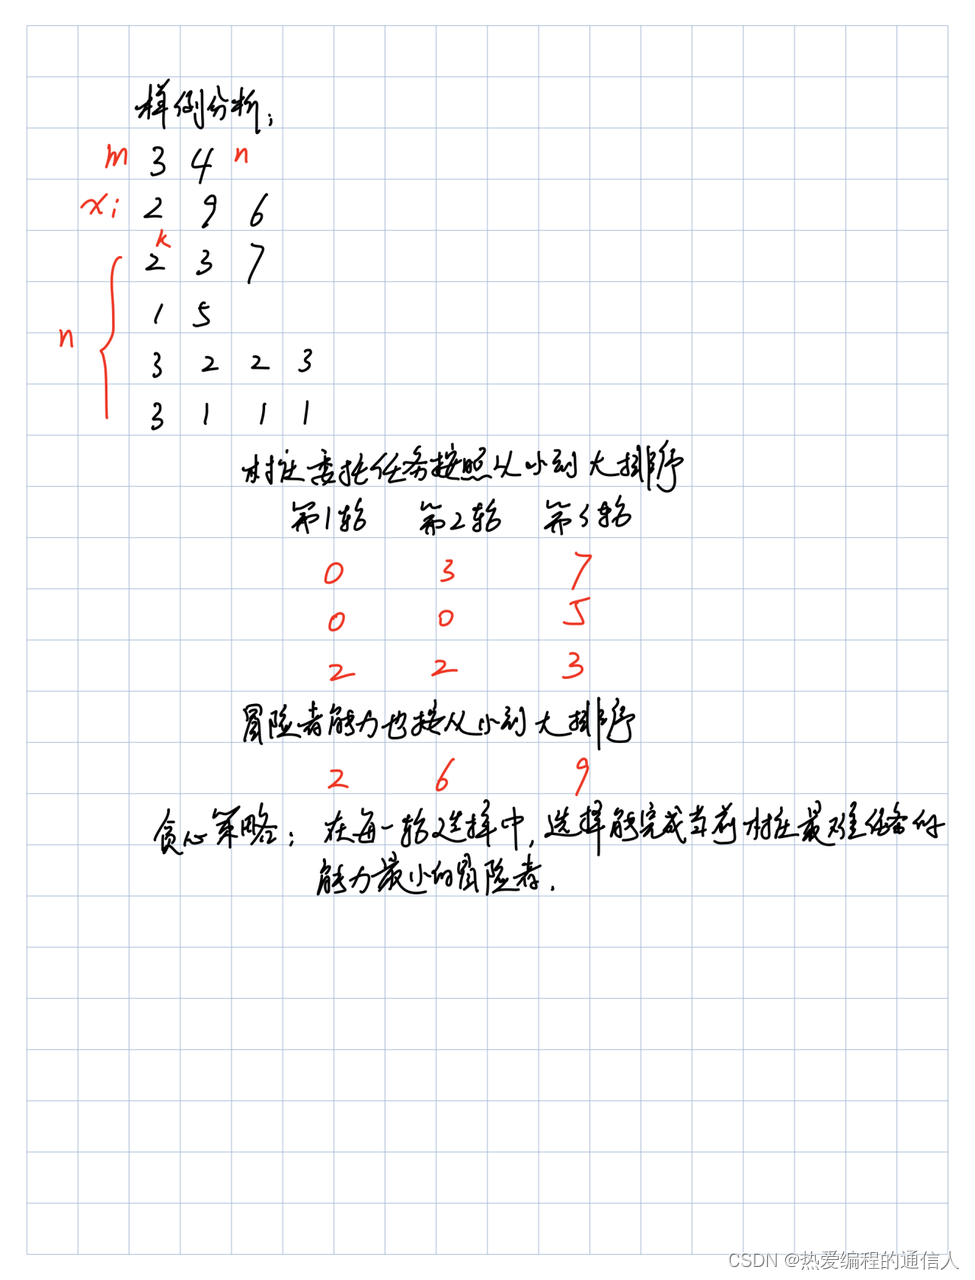 样例分析：
m 3 4 n
xi 2 9 6
k
2 3 7
1 5
n
3 2 2 3
3 1 1 1
村庄委托任务按照从小到大排序
第1轮 第2轮 第3轮
0 3 7
0 0 5
2 2 3
冒险者能力也按从小到大排序
2 6 9
贪心策略：在每一轮选择中，选择能完成当前村庄最难任务的
能力最小的冒险者．
CSDN @热爱编程的通信人